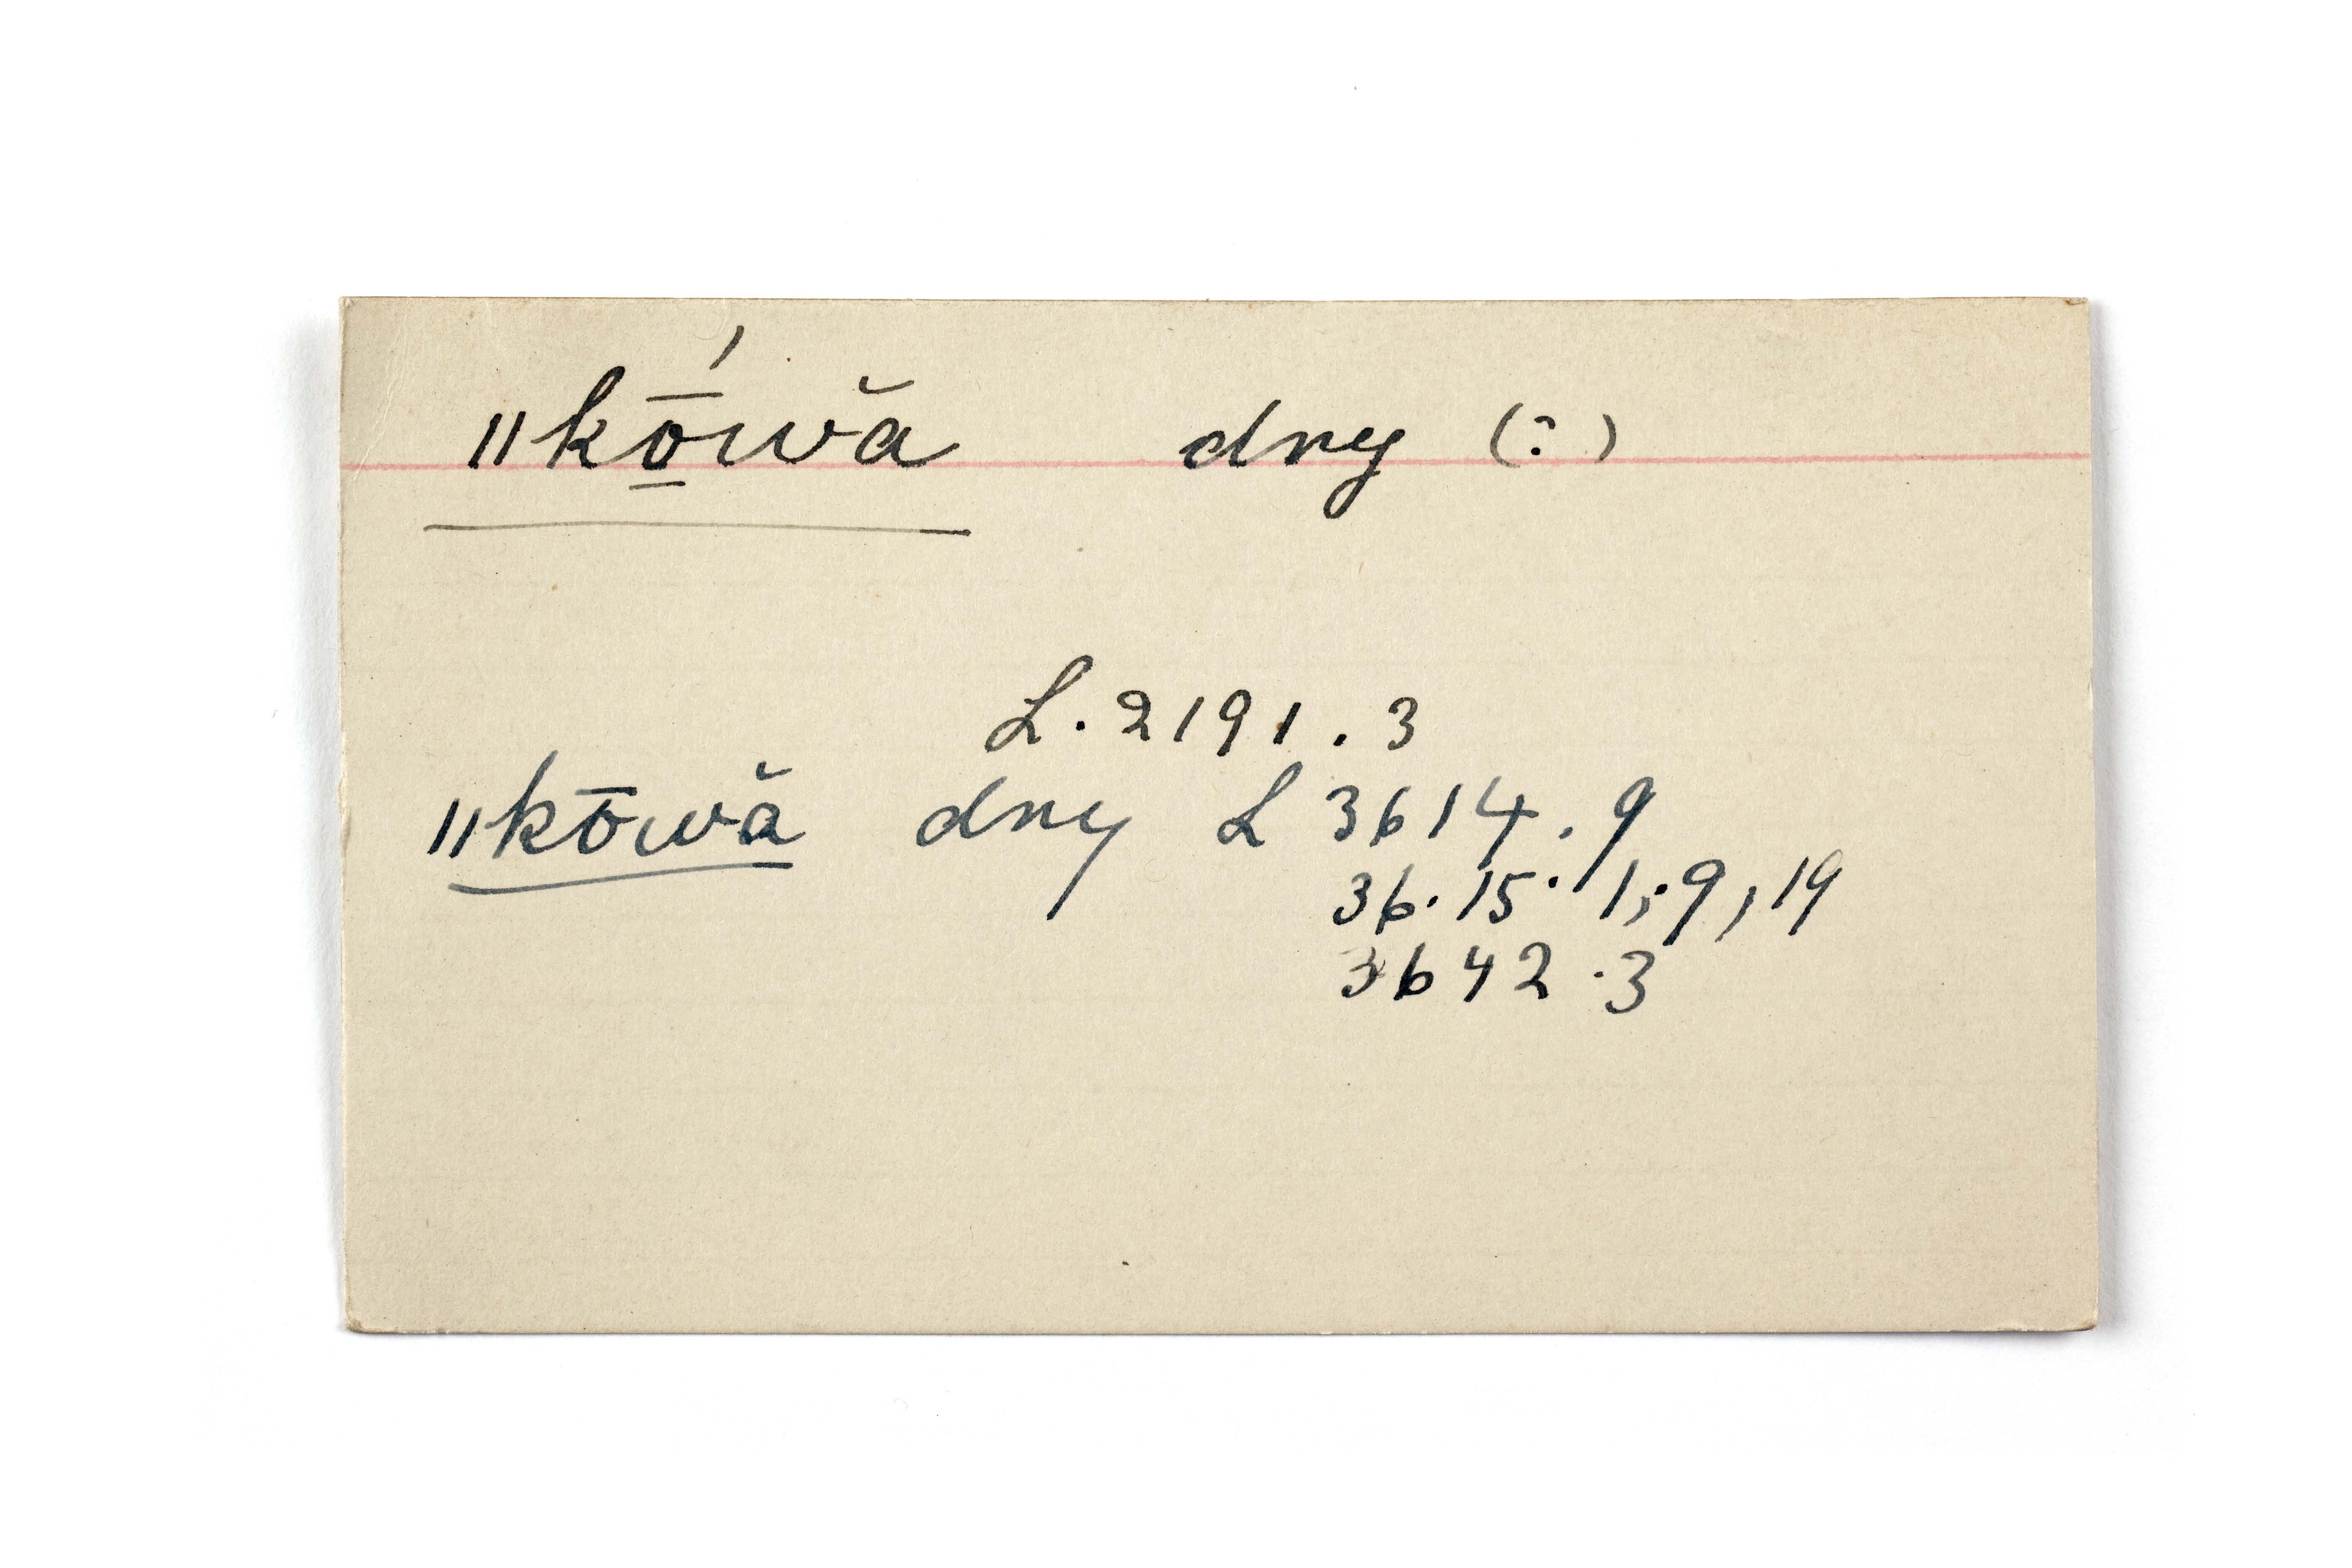 ǁkṓ̱wă dry (?)
L. 2191. 3
ǁkōwă dry L 3614. 9
36·15· 1; 9, 19
3642·3